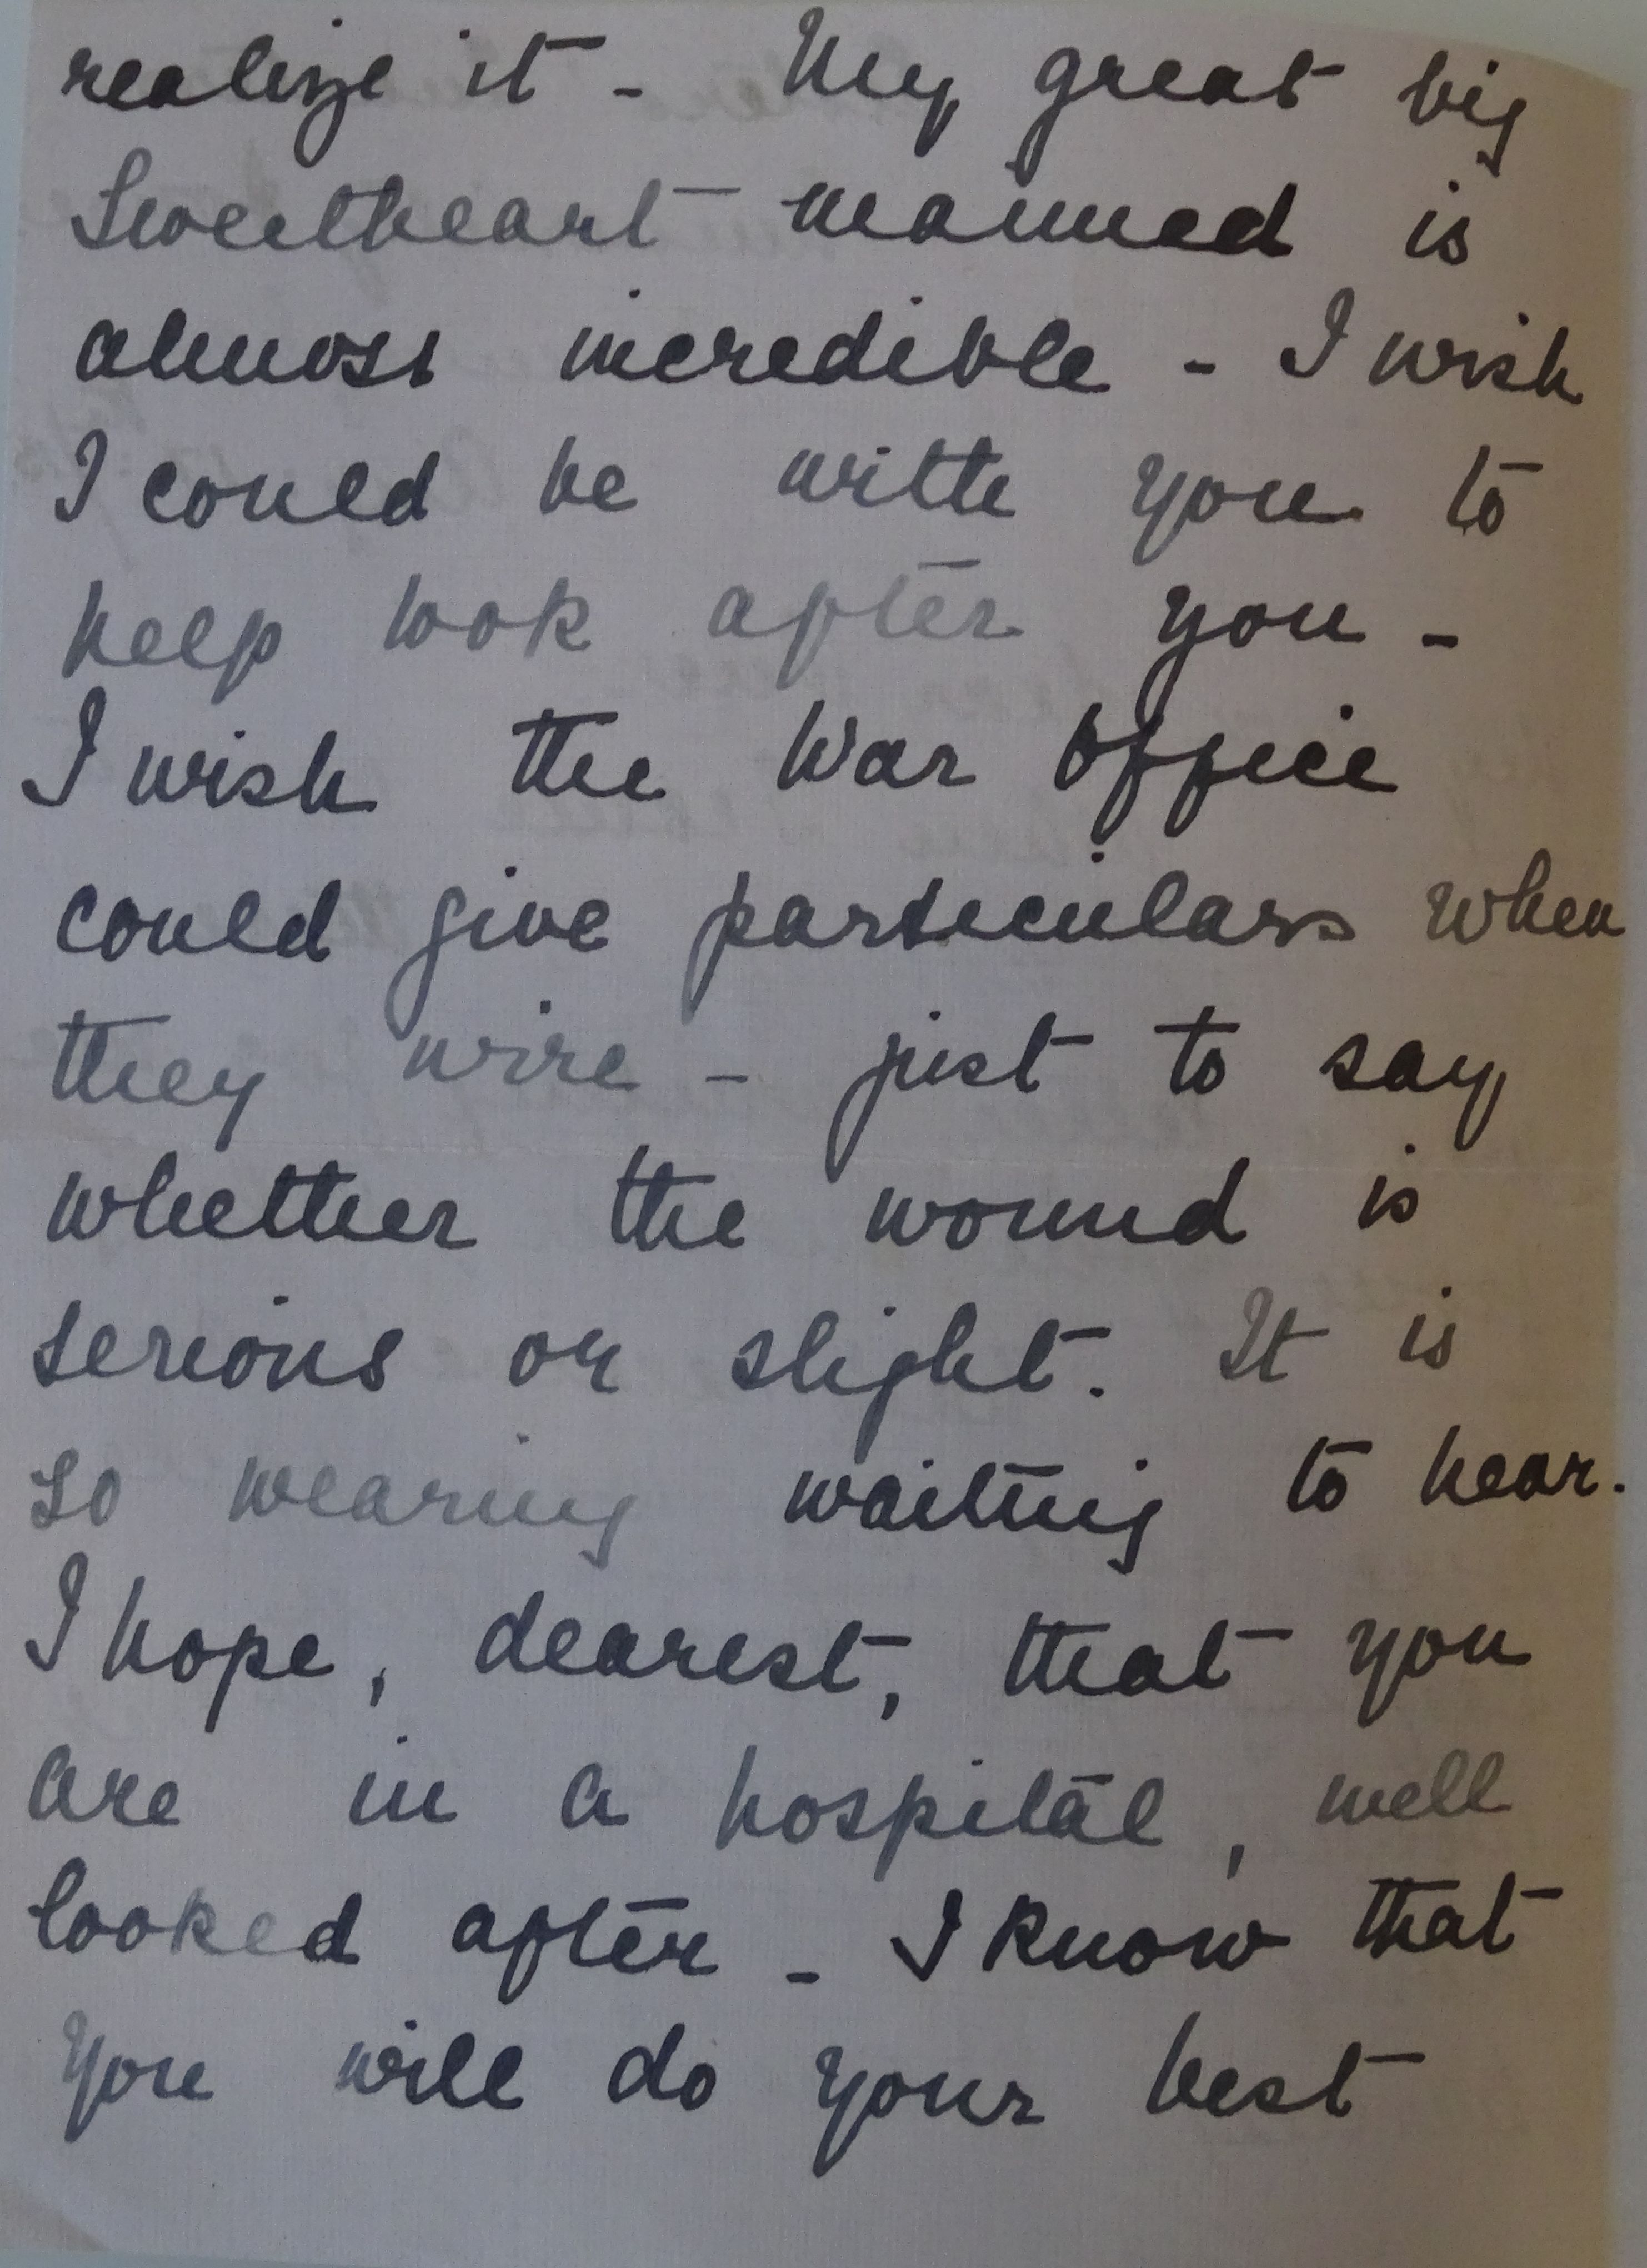 realize it - My great big
Sweetheart maimed is
almost incredible - I wish
I could be with you to
help look after you -
I wish the War Office
could give particulars when
they wire - just to say
whether the wound is
serious or slight. It is
so wearing waiting to hear.
I hope, dearest, that you
are in a hospital, well
looked after - I know that
you will do your best